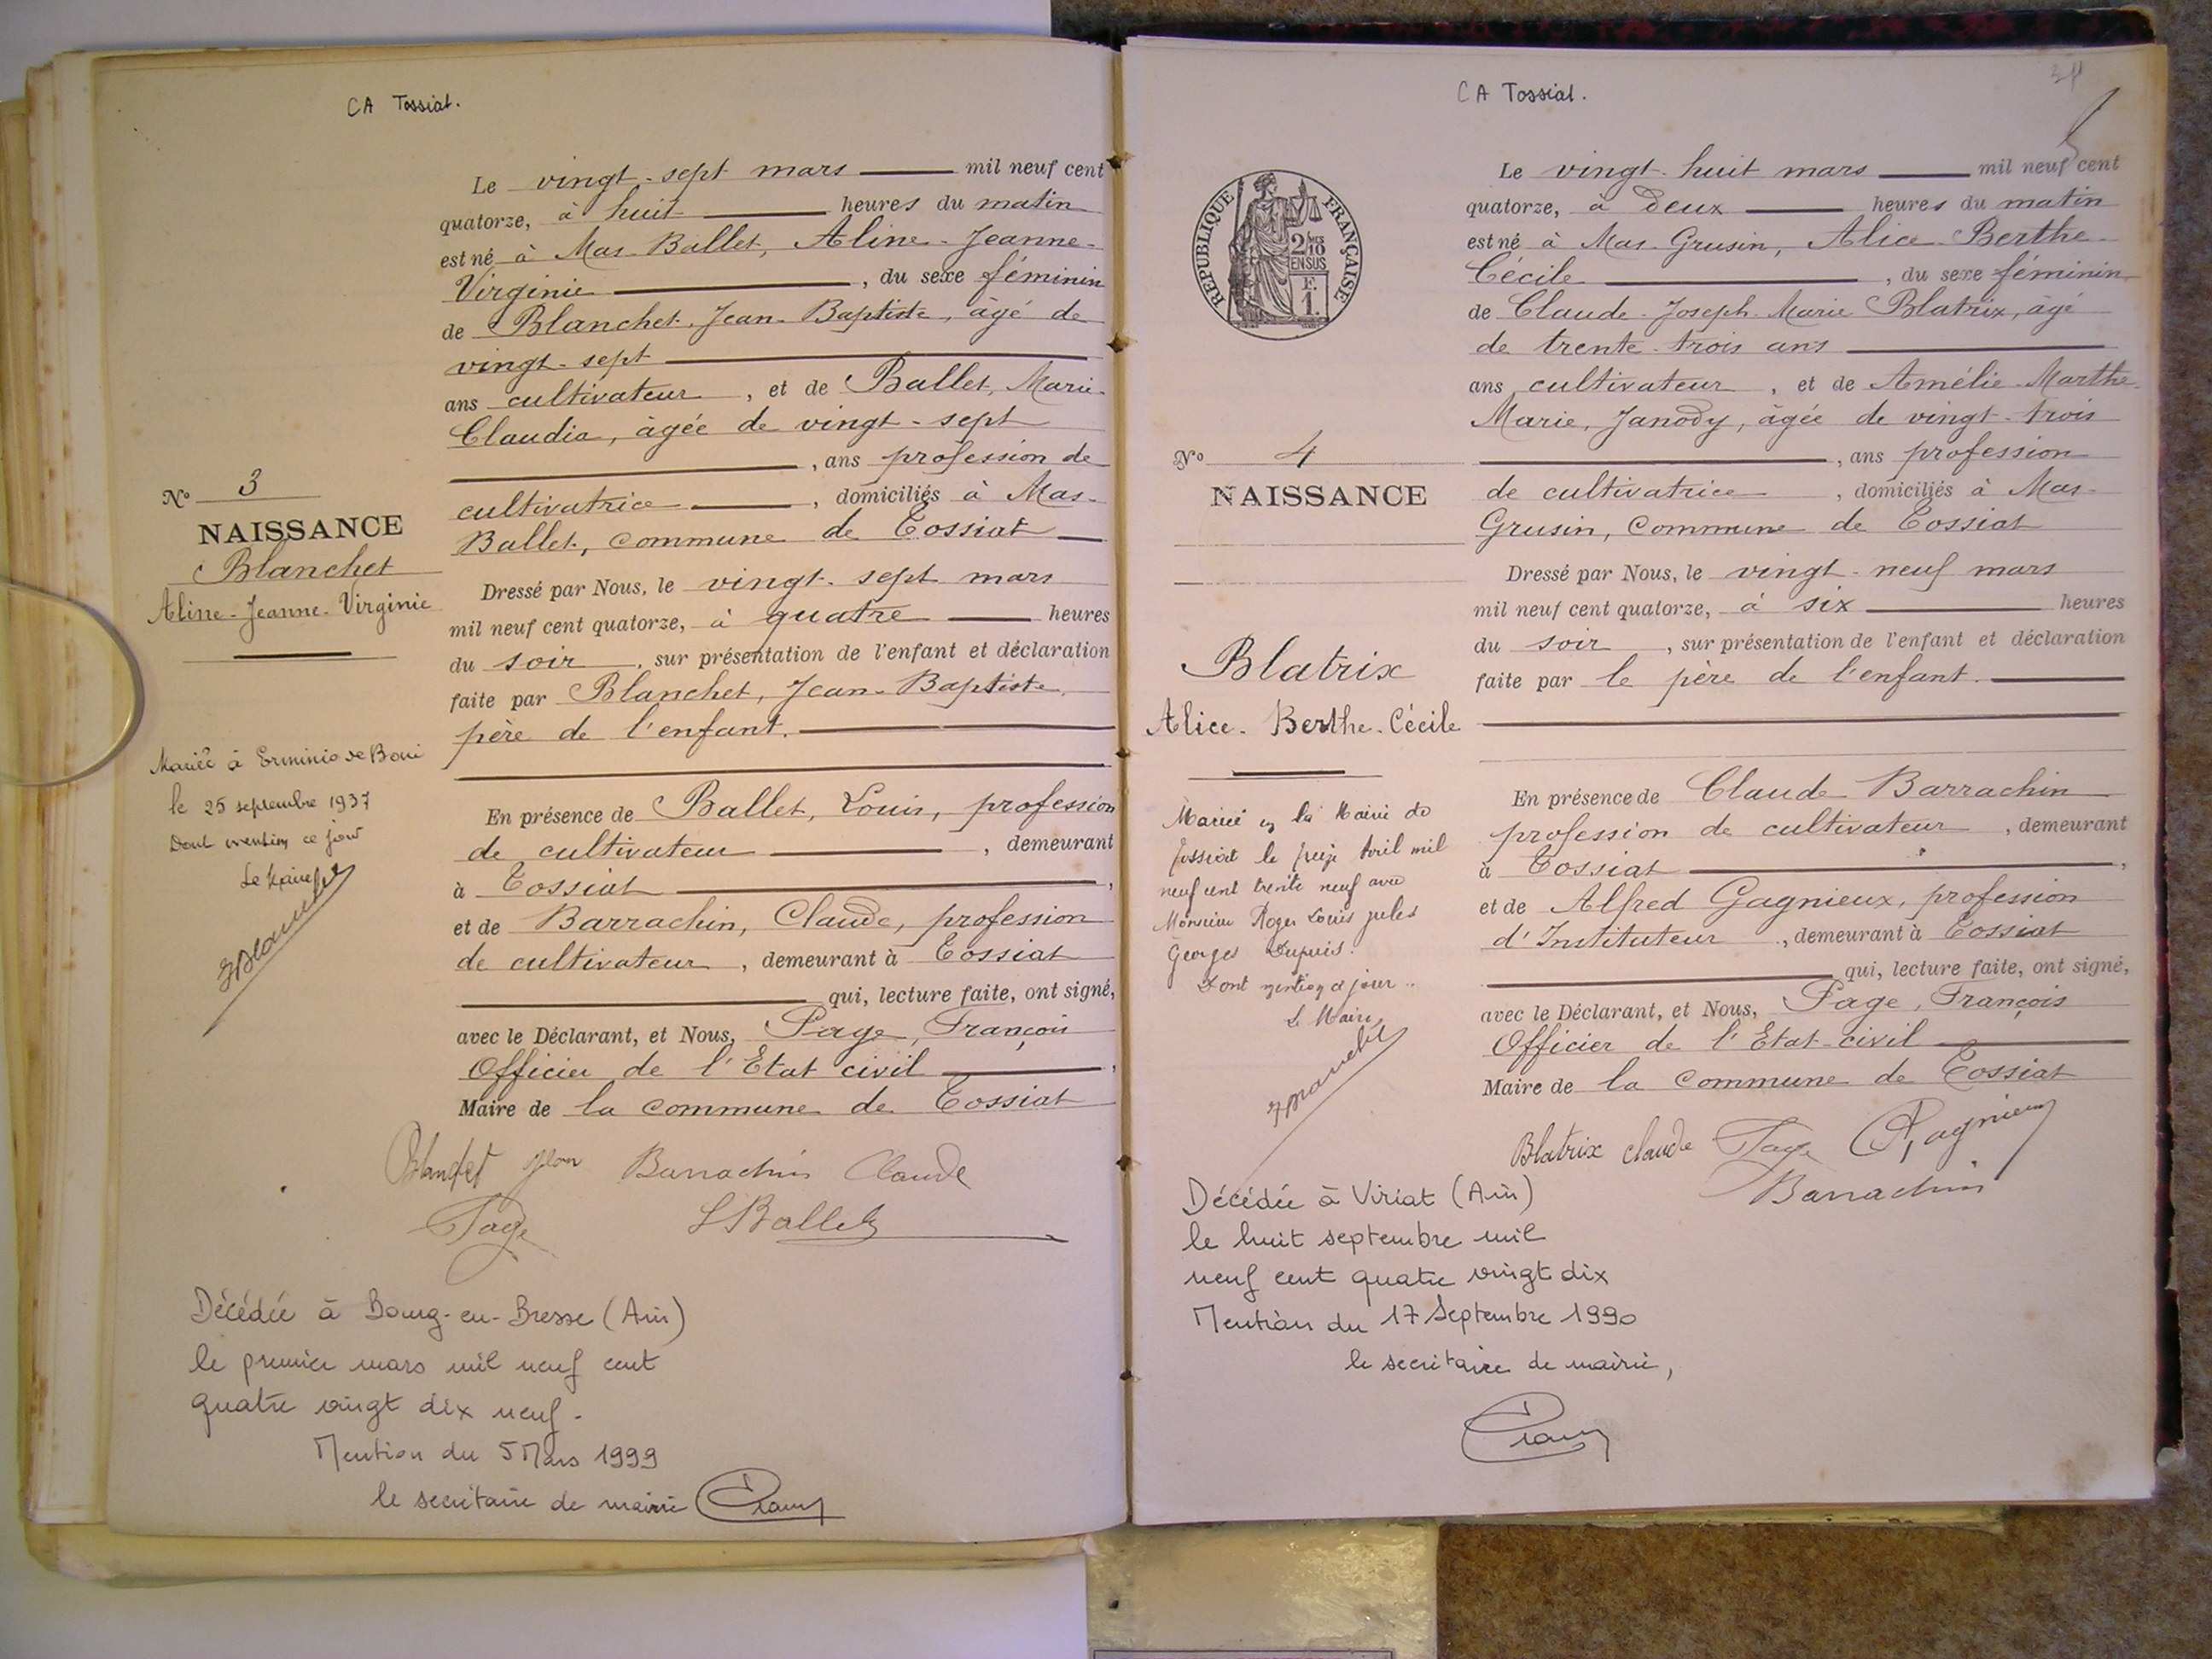 CA Tossiat.
Le vingt-sept mars mil neuf cent
quatorze, à huit heures du matin
est né à Mas-Ballet, Aline-Jeanne-
Virginie, du sexe féminin
de Blanchet, Jean-Baptiste, âgé de
vingt-sept
ans cultivateur, et de Ballet, Marie-
Claudia, âgée de vingt-sept
, ans profession de
cultivatrice, domiciliés à Mas-
Ballet, commune de Tossiat
Dressé par Nous, le vingt-sept mars
mil neuf cent quatorze, à quatre heures
du soir, sur présentation de l'enfant et déclaration
faite par Blanchet, Jean-Baptiste,
père de l'enfant.
En présence de Ballet, Louis, profession
de cultivateur, demeurant
à Tossiat,
et de Barrachin, Claude, profession
de cultivateur, demeurant à Tossiat
qui, lecture faite, ont signé,
avec le Déclarant, et Nous, Page, François
Officier de l'Etat civil,
Maire de la commune de Tossiat
Blanchet Jean Barrachin Claude
Page L Ballet
No 3
NAISSANCE
Blanchet
Aline-Jeanne-Virginie
Mariée à Erminio de Boni
le 25 septembre 1937
Dont mention ce jour
Le Maire
Décédée à Bourg-en-Bresse (Ain)
le premier mars mil neuf cent
quatre vingt dix neuf.
Mention du 5 Mars 1999
le secrétaire de mairie
CA Tossiat.
RÉPUBLIQUE FRANÇAISE
2/10 EN SUS
F. 1.
Le vingt-huit mars mil neuf cent
quatorze, à deux heures du matin
est né à Mas-Grusin, Alice-Berthe-
Cécile, du sexe féminin
de Claude-Joseph-Marie Blatrix, âgé
de trente-trois ans
ans cultivateur, et de Amélie-Marthe-
Marie, Janody, âgée de vingt-trois
, ans profession
de cultivatrice, domiciliés à Mas-
Grusin, Commune de Tossiat
Dressé par Nous, le vingt-neuf mars
mil neuf cent quatorze, à six heures
du soir, sur présentation de l'enfant et déclaration
faite par le père de l'enfant.
En présence de Claude Barrachin
profession de cultivateur, demeurant
à Tossiat,
et de Alfred Gagnieux, profession
d'Instituteur, demeurant à Tossiat
qui, lecture faite, ont signé,
avec le Déclarant, et Nous, Page, François
Officier de l'Etat-civil
Maire de la Commune de Tossiat
Blatrix Claude Page A, Gagnieux
Barrachin
No 4
NAISSANCE
Blatrix
Alice-Berthe-Cécile
Mariée en la Mairie de
Tossiat le Avril mil
neuf cent trente neuf avec
Monsieur Roger Louis Jules
Georges Dupuis.
Dont mention ce jour..
Le Maire
Décédée à Viriat (Ain)
le huit septembre mil
neuf cent quatre vingt dix
Mention du 17 Septembre 1990
le secrétaire de mairie,